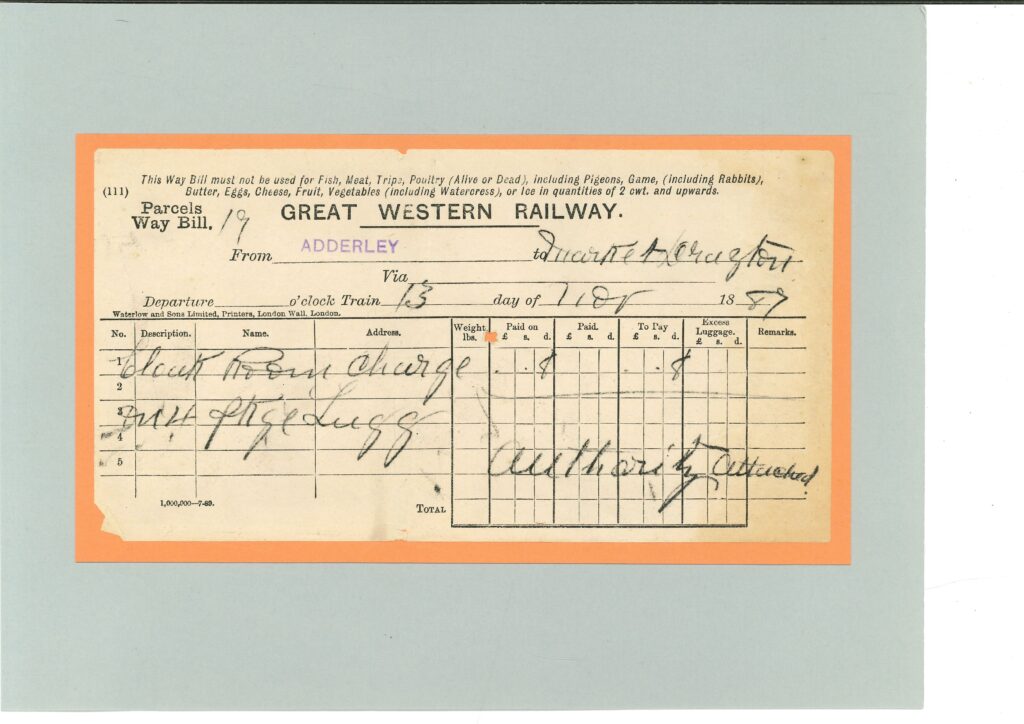 This Way Bill must not be used for Fish, Meat, Tripe, Poultry (Alive or Dead), including Pigeons, Game, (including Rabbits),
(111) Butter, Eggs, Cheese, Fruit, Vegetables (including Watercress), or Ice in quantities of 2 cwt. and upwards.
Parcels Way Bill. 19 GREAT WESTERN RAILWAY.
From ADDERLEY to Market Drayton
Via
Departure o'clock Train 13 day of Nov 1889
Waterlow and Sons Limited, Printers, London Wall, London.
No. Description. Name. Address. Weight lbs. Paid on £ s. d. Paid. £ s. d. To Pay £ s. d. Excess Luggage. £ s. d. Remarks.
1 Cloak Room Charge
2
3 Lugg
4
5 Authority attached
1,000,000—7-89. TOTAL